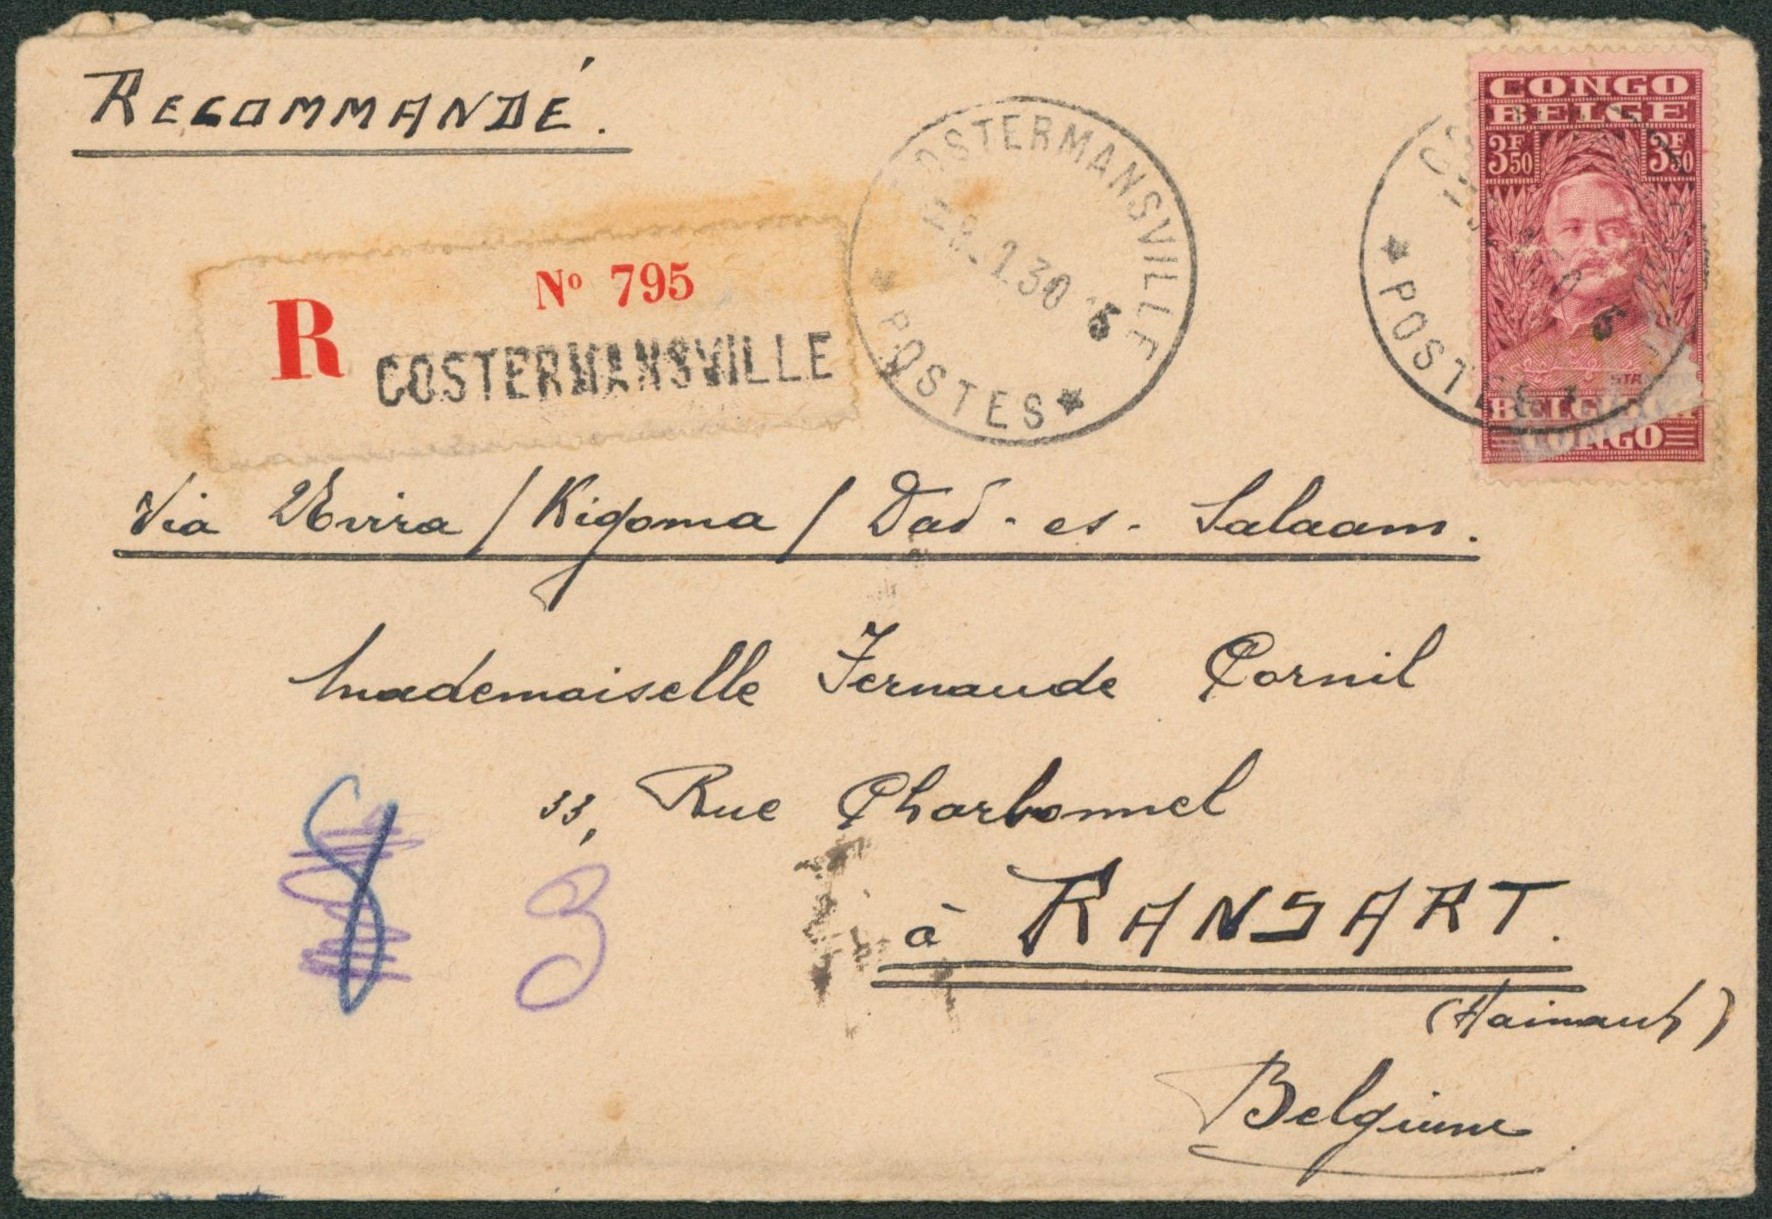 RECOMMANDÉ.
COSTERMANSVILLE
1.30
POSTES
CONGO
BELGE
3F50 3F50
POSTES
BELGISCH
CONGO
R
No 795
COSTERMANSVILLE
Via Uvira / Kigoma / Dar-es-Salaam.
Mademoiselle Fernande Cornil
33, Rue Charbonnel
à RANSART.
(Hainaut)
Belgique
8
3